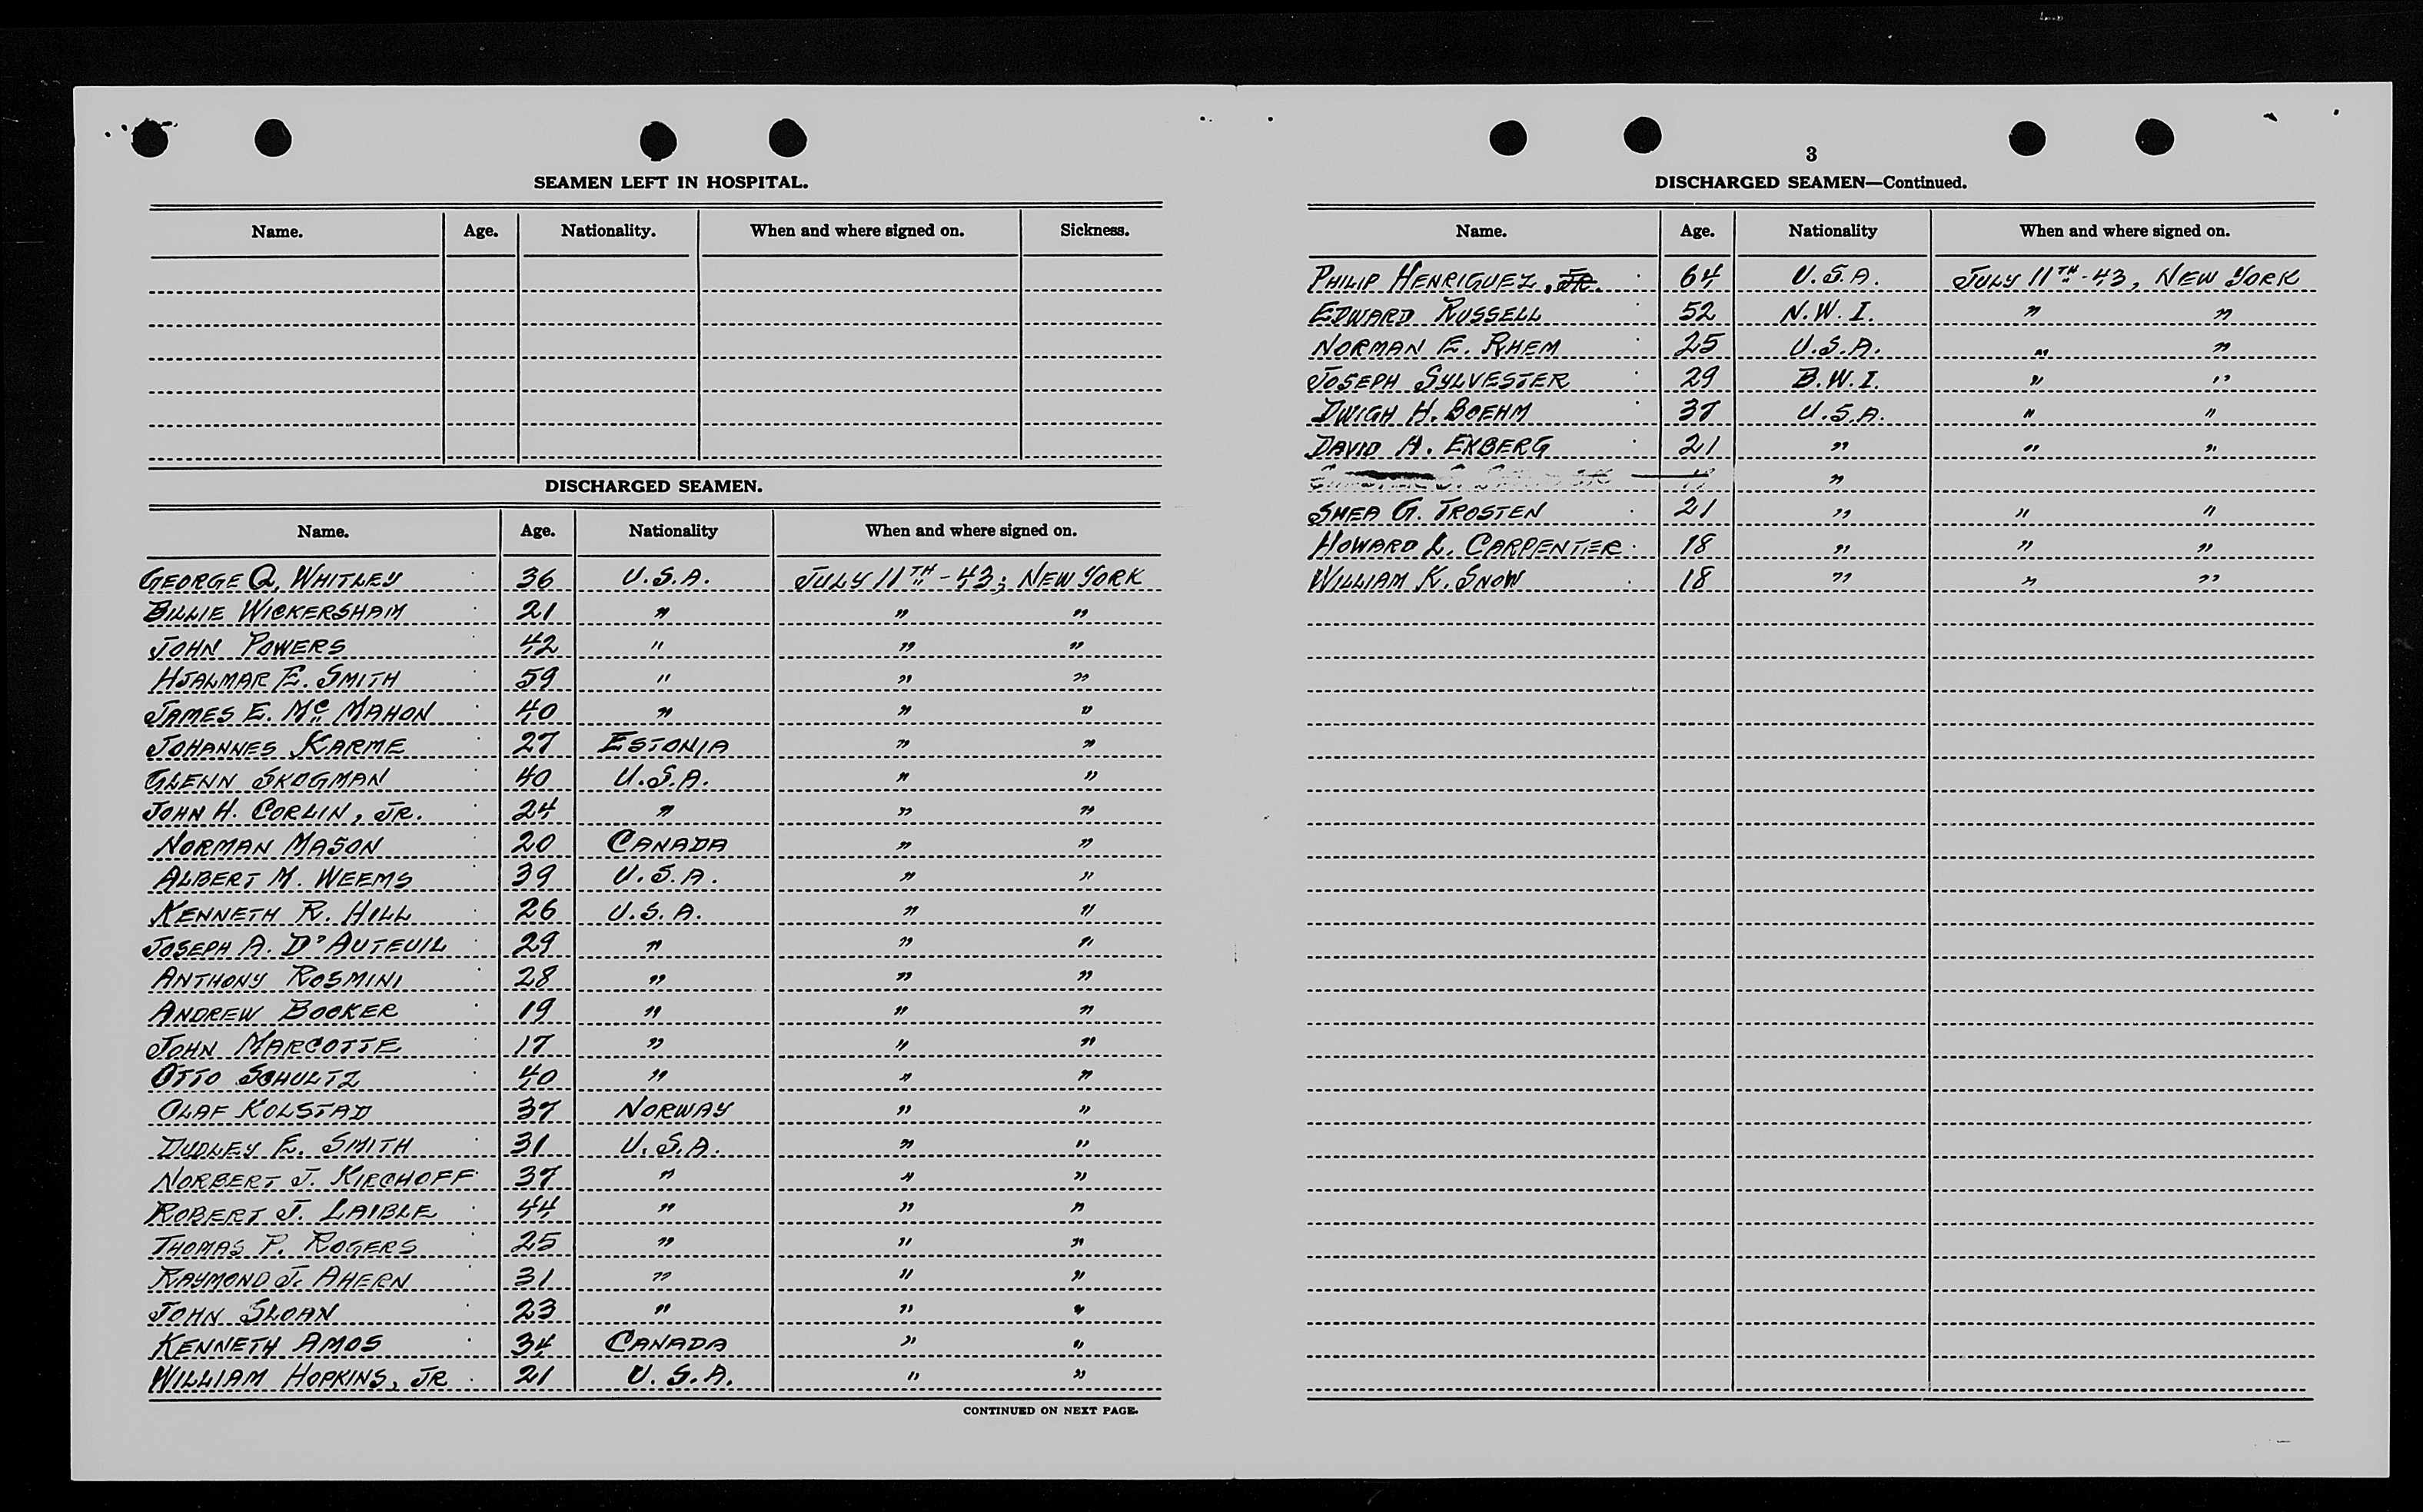 SEAMEN LEFT IN HOSPITAL.
Name. Age. Nationality. When and where signed on. Sickness.
DISCHARGED SEAMEN.
Name. Age. Nationality When and where signed on.
GEORGE Q. WHITLEY 36 U.S.A. JULY 11TH - 43; NEW YORK
BILLIE WICKERSHAM 21 " " "
JOHN POWERS 42 " " "
HJALMAR E. SMITH 59 " " "
JAMES E. Mc MAHON 40 " " "
JOHANNES KARME 27 ESTONIA " "
GLENN SKOGMAN 40 U.S.A. " "
JOHN H. CORLIN, JR. 24 " " "
NORMAN MASON 20 CANADA " "
ALBERT M. WEEMS 39 U.S.A. " "
KENNETH R. HILL 26 U.S.A. " "
JOSEPH A. D'AUTEUIL 29 " " "
ANTHONY ROSMINI 28 " " "
ANDREW BOOKER 19 " " "
JOHN MARCOTTE 17 " " "
OTTO SCHULTZ 40 " " "
OLAF KOLSTAD 37 NORWAY " "
DUDLEY E. SMITH 31 U.S.A. " "
NORBERT J. KIRCHOFF 37 " " "
ROBERT J. LAIBLE 44 " " "
THOMAS P. ROGERS 25 " " "
RAYMOND J. AHERN 31 " " "
JOHN SLOAN 23 " " "
KENNETH AMOS 34 CANADA " "
WILLIAM HOPKINS, JR 21 U.S.A. " "
CONTINUED ON NEXT PAGE.
3
DISCHARGED SEAMEN—Continued.
Name. Age. Nationality When and where signed on.
PHILIP HENRIQUEZ, JR. 64 U.S.A. JULY 11TH - 43, NEW YORK
EDWARD RUSSELL 52 N.W.I. " "
NORMAN E. RHEM 25 U.S.A. " "
JOSEPH SYLVESTER 29 B.W.I. " "
DWIGH H. BOEHM 37 U.S.A. " "
DAVID A. EKBERG 21 " " "
"
SHEA G. TROSTEN 21 " " "
HOWARD L. CARPENTIER 18 " " "
WILLIAM K. SNOW 18 " " "